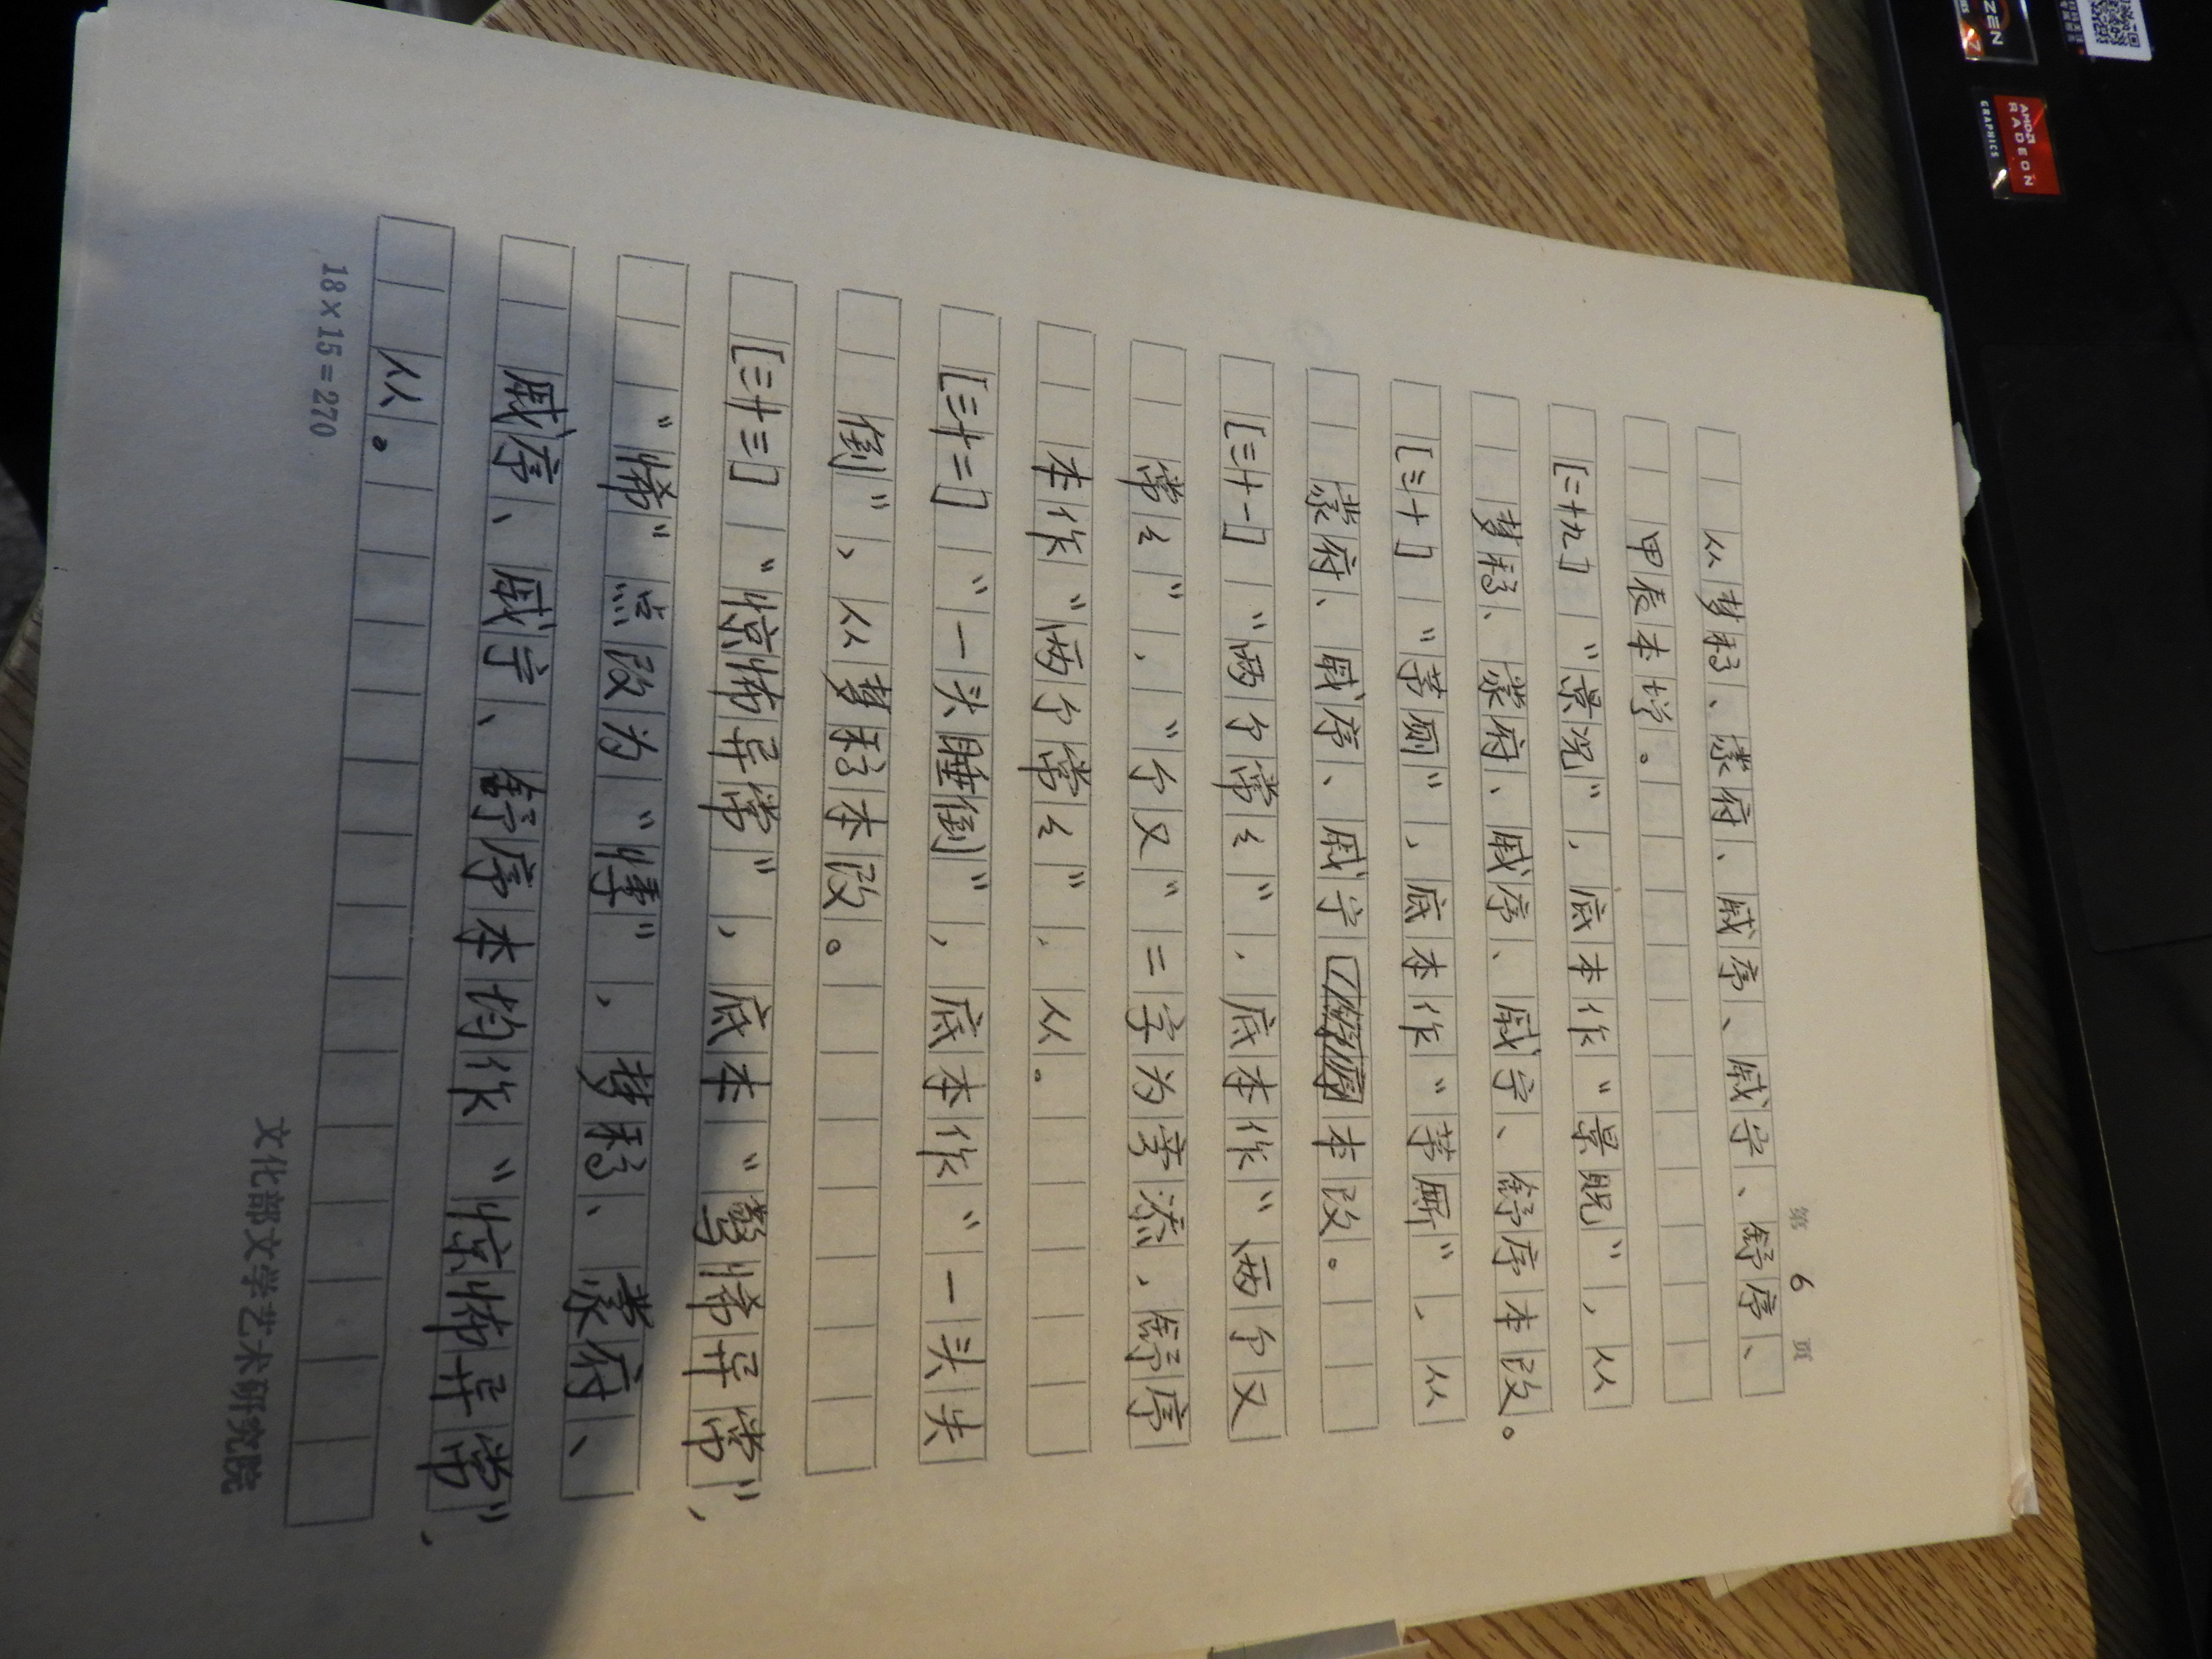 第 6 页
从梦稿、蒙府、戚序、戚宁、舒序、
甲辰本补。
[二十九] “景况”，底本作“景贶”，从
梦稿、蒙府、戚序、戚宁、舒序本改。
[三十] “茅厕”，底本作“茅厮”，从
蒙府、戚序、戚宁本改。
[三十一] “两个常之”，底本作“两个又
常之”，“个又”二字为旁添，舒序
本作“两个常之”，从。
[三十二] “一头睡倒”，底本作“一头失
倒”，从梦稿本改。
[三十三] “惊怖异常”，底本“警悕异常”，
“悕”点改为“慱”，梦稿、蒙府、
戚序、戚宁、舒序本均作“惊怖异常”，
从。
18×15=270
文化部文学艺术研究院
ZEN
7
AMD
RADEON
GRAPHICS